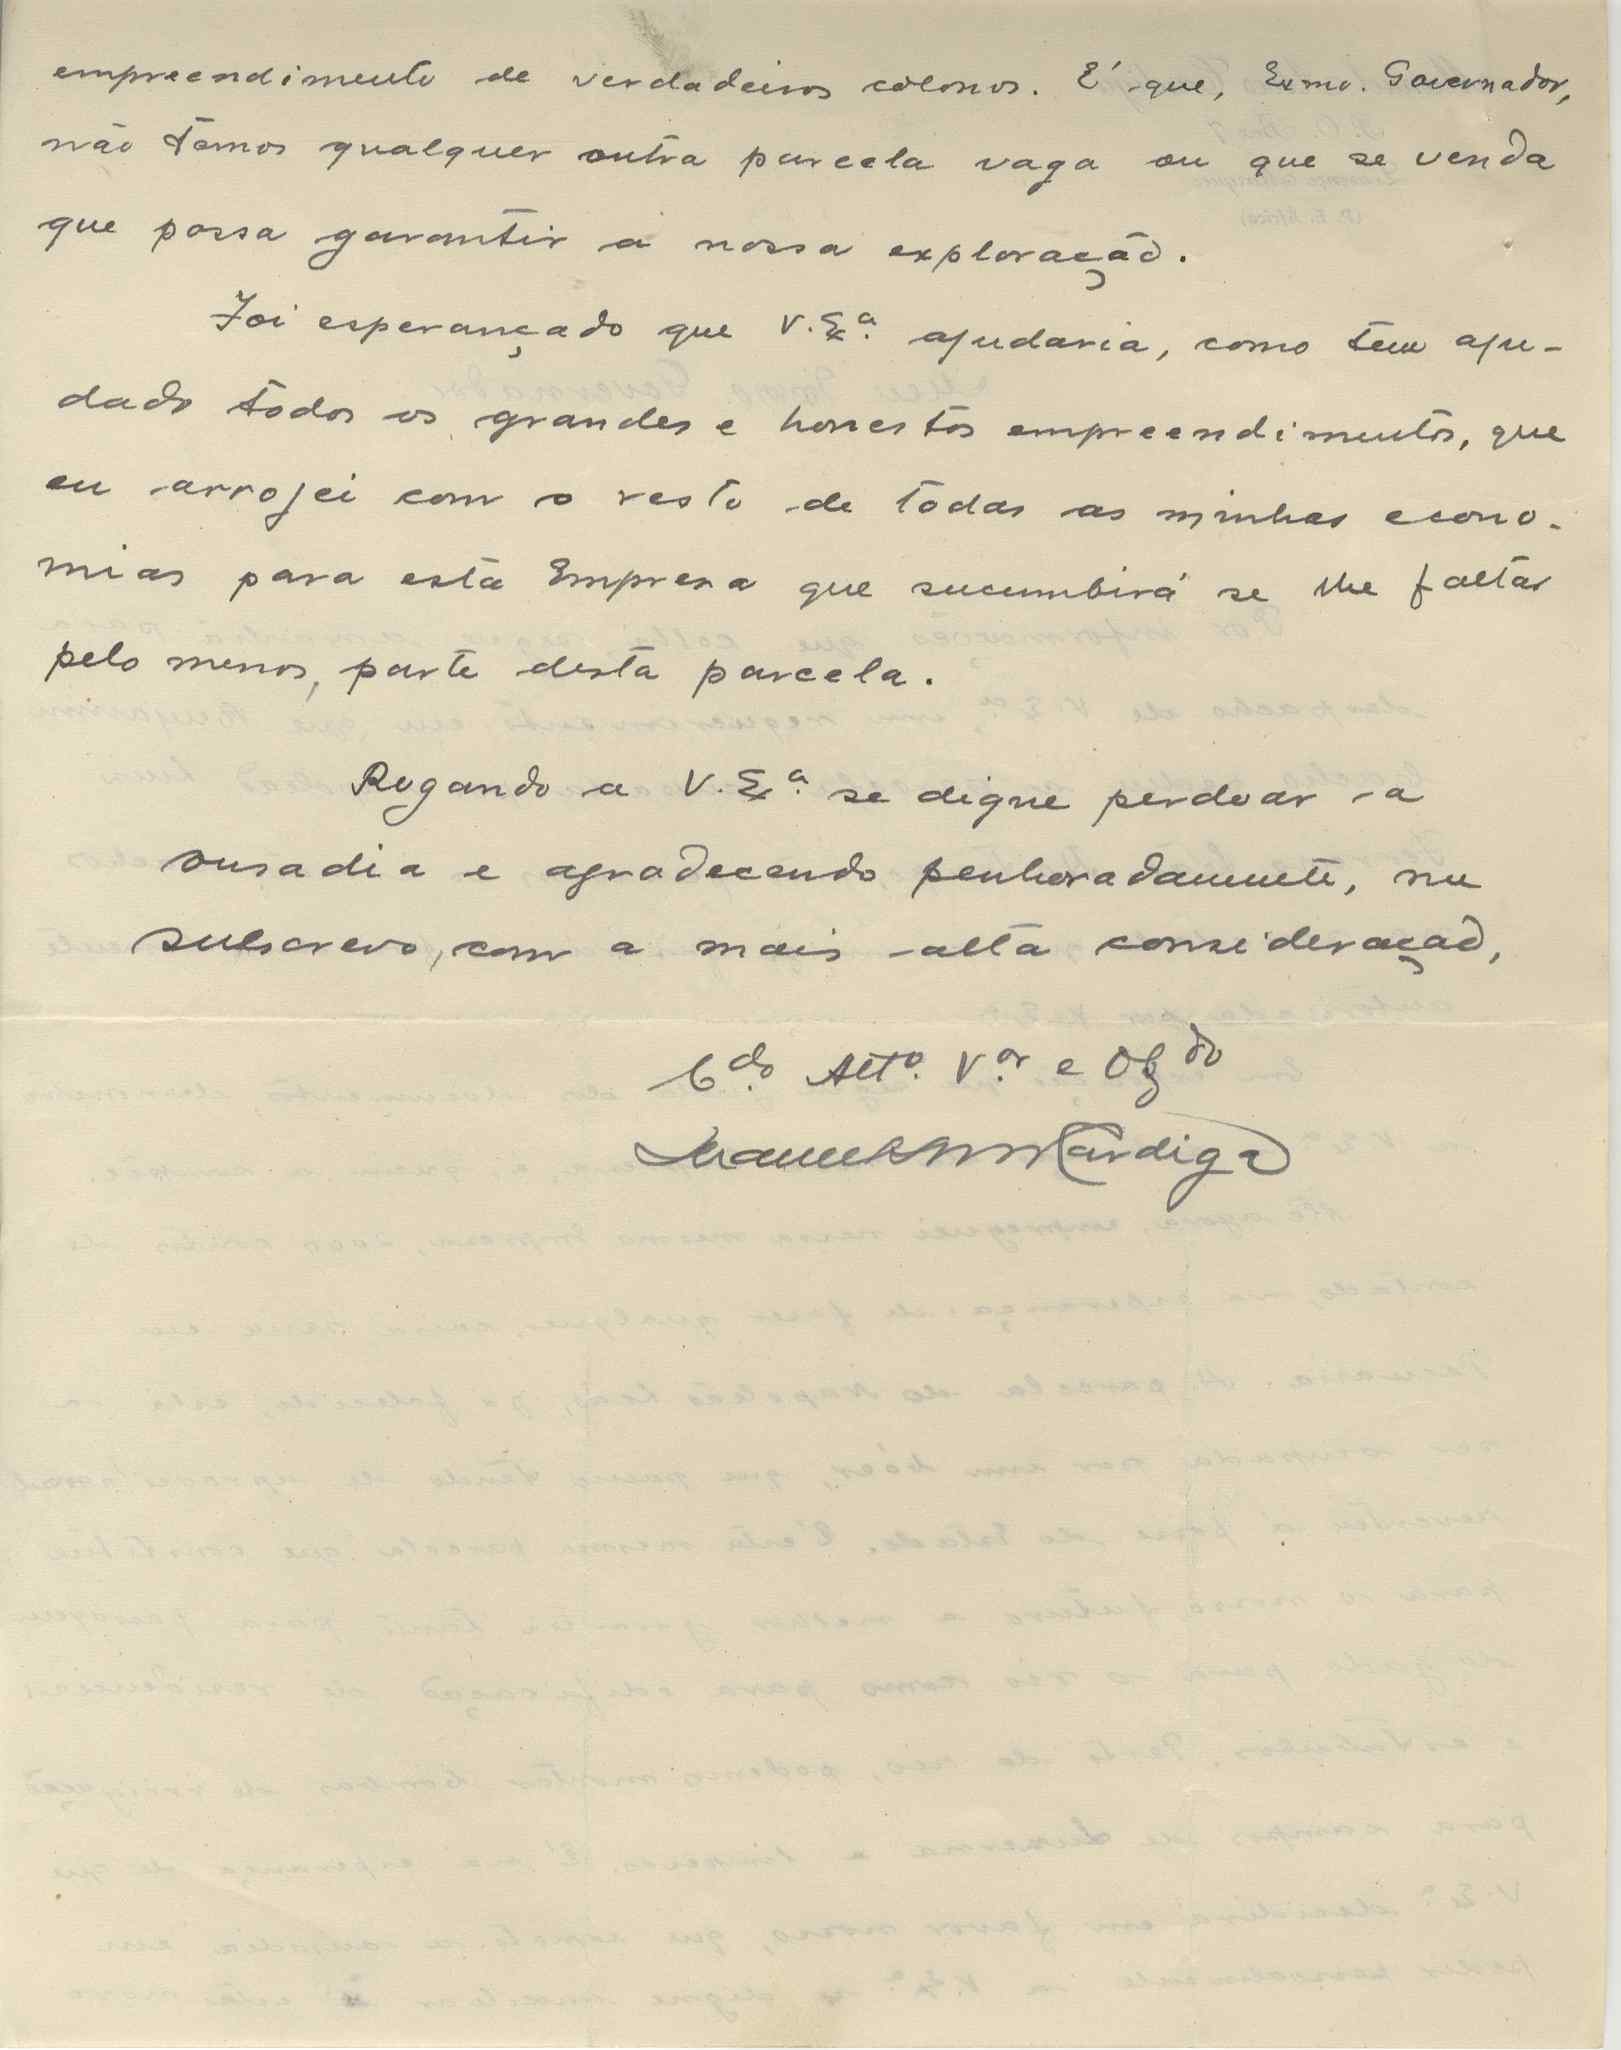 empreendimento de verdadeiros colonos. E' que, Exmo. Governador,
não têmos qualquer outra parcela vaga ou que se venda
que possa garantir a nossa exploração.
Foi esperançado que V. Exª. ajudaria, como tem aju-
dado todos os grandes e honestos empreendimentos, que
eu arrojei com o resto de todas as minhas econo-
mias para esta Empresa que sucumbirá se lhe faltar
pelo menos, parte desta parcela.
Rogando a V. Exª. se digne perdoar a
ousadia e agradecendo penhoradamente, me
subscrevo, com a mais alta consideração,
Cdo. Altº. Vor. e Obgdo
Manuel Cardiga